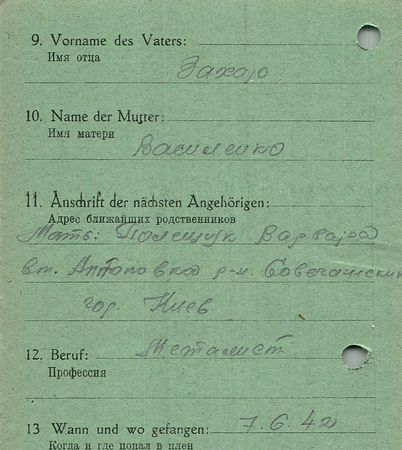 9. Vorname des Vaters:
Имя отца
Захаро
10. Name der Mutter:
Имя матери
Василенко
11. Anschrift der nächsten Angehörigen:
Адрес ближайших родственников
Мать: Полещук Варвара
р-н.
гор. Киев
12. Beruf: Металист
Профессия
13 Wann und wo gefangen: 7.6.42
Когда и где попал в плен